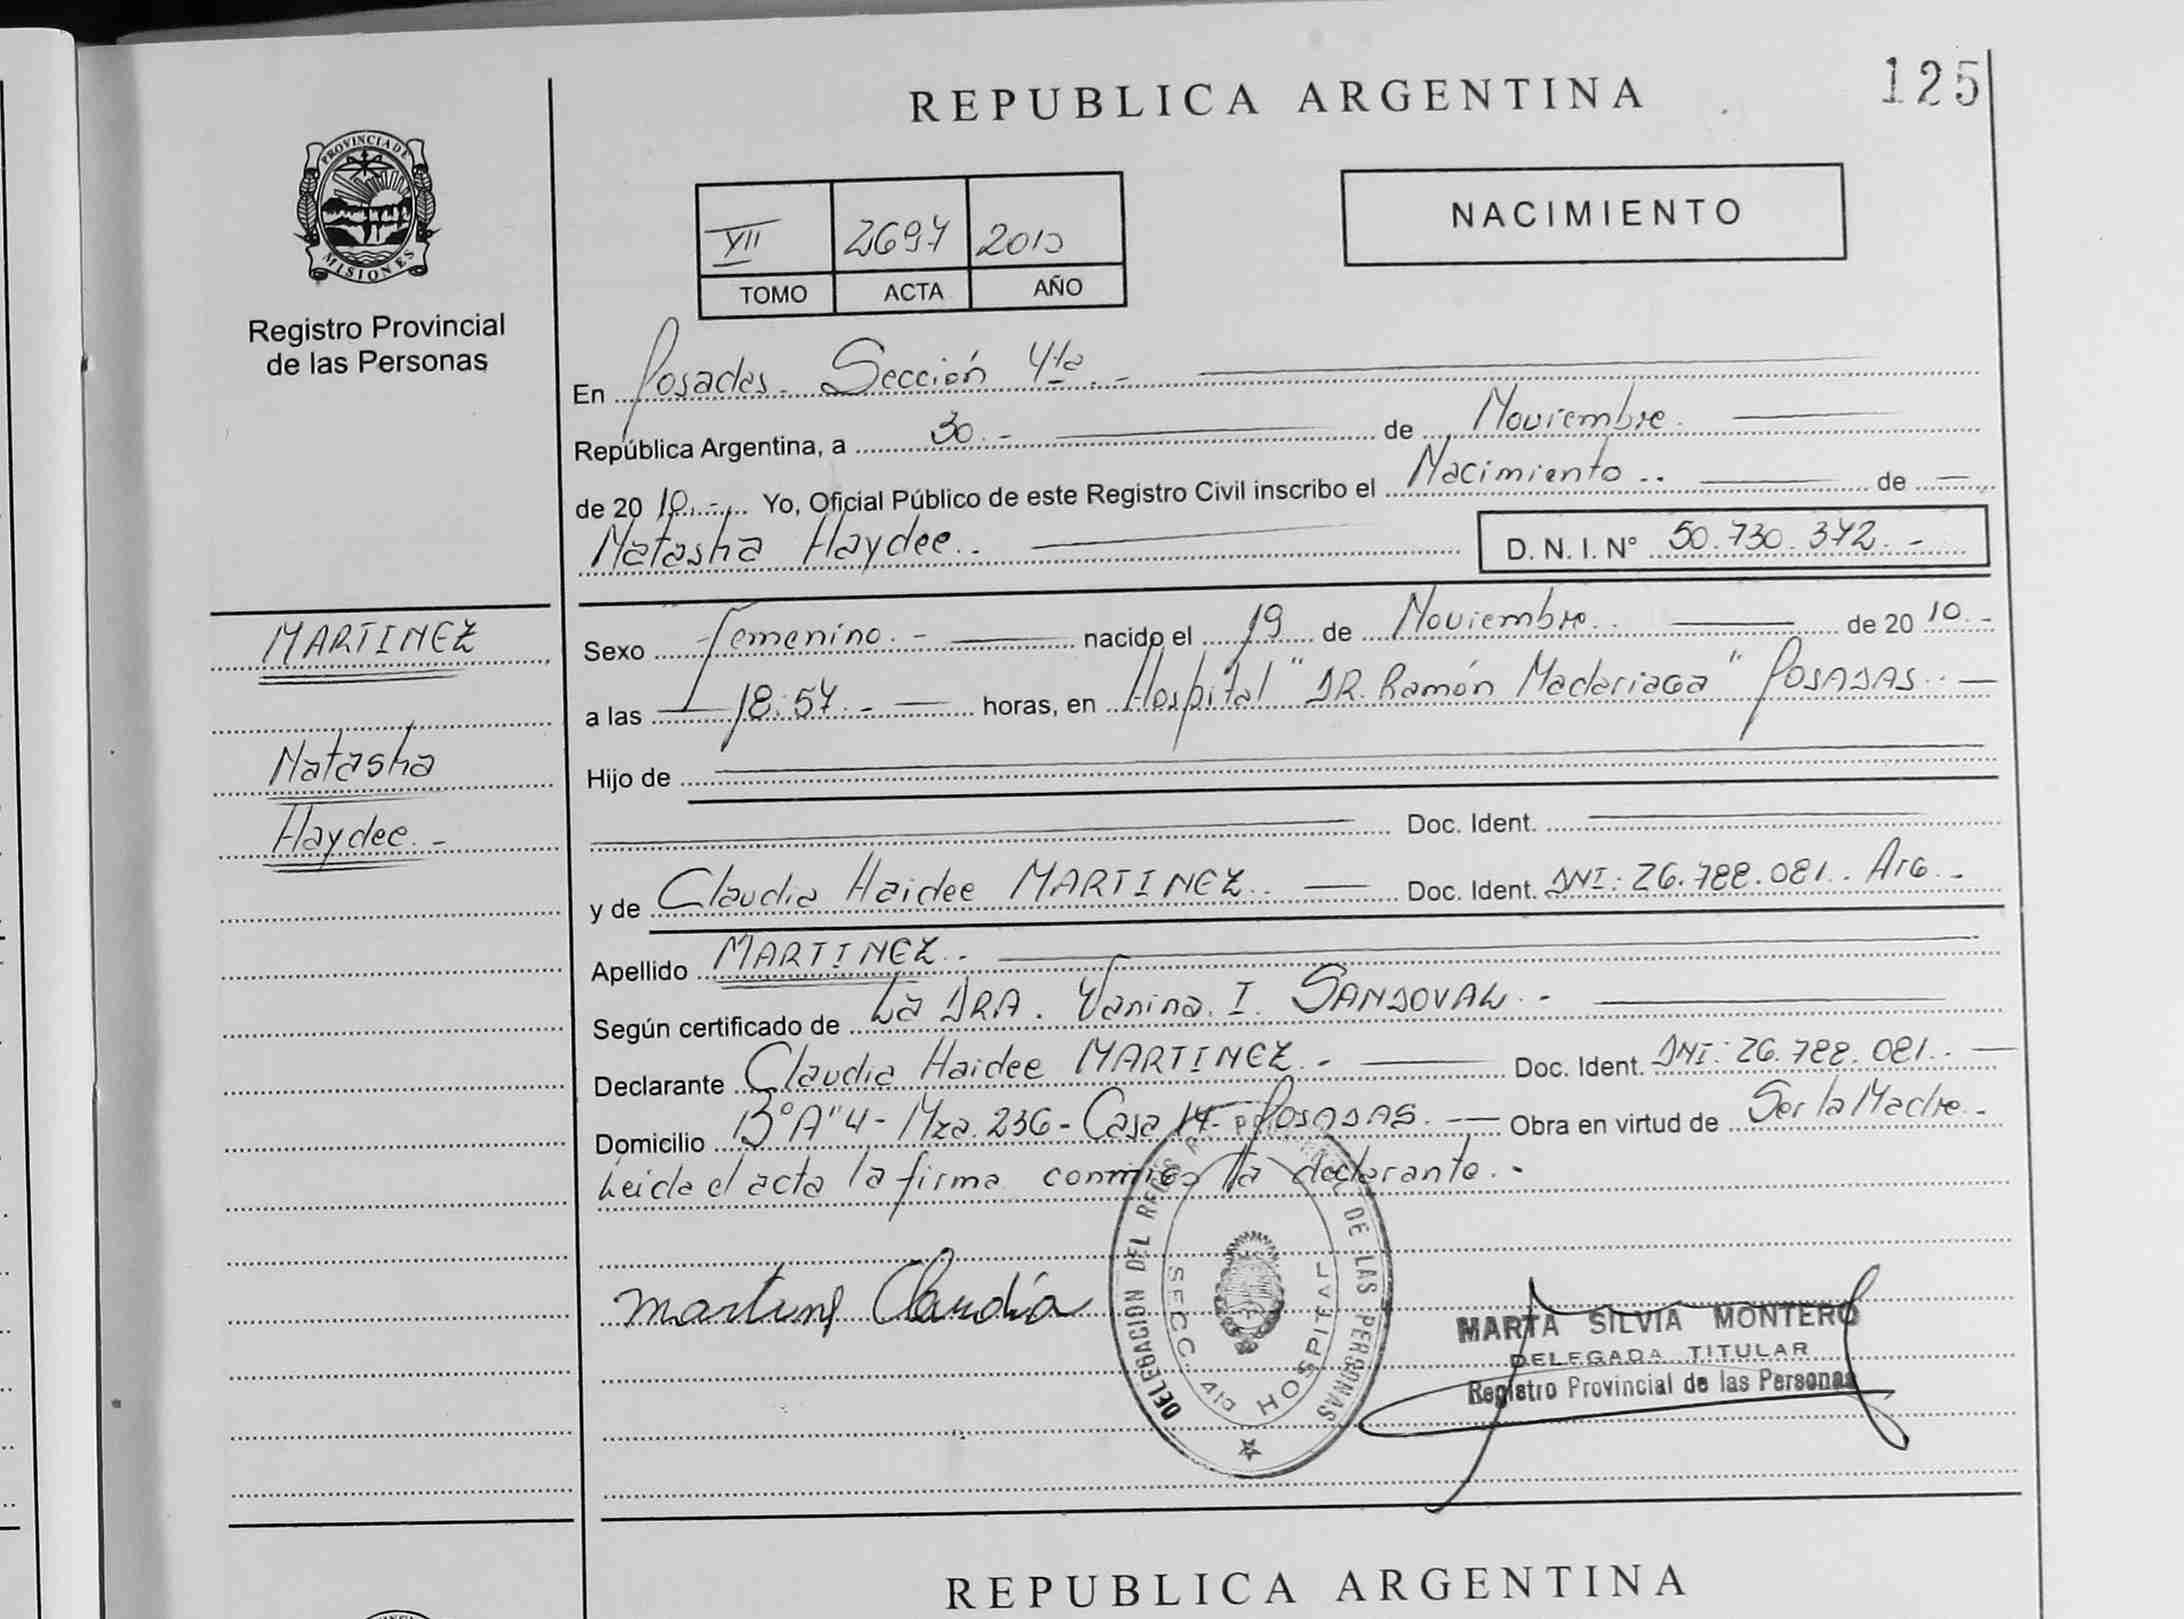 REPUBLICA ARGENTINA
125
PROVINCIA DE
MISIONES
Registro Provincial
de las Personas
VII 2697 2010
TOMO ACTA AÑO
NACIMIENTO
En Posadas - Sección 4ta. -
República Argentina, a 30. - de Noviembre.
de 20 10. - Yo, Oficial Público de este Registro Civil inscribo el Nacimiento .. de
Natasha Haydee.. D. N. I. Nº 50.730.372. -
MARTINEZ
Natasha
Haydee. -
Sexo Femenino. - nacido el 19 de Noviembre.. de 20 10. -
a las 18:57. - horas, en Hospital "DR. Ramón Madariaga" POSADAS. -
Hijo de
Doc. Ident.
y de Claudia Haidee MARTINEZ.. Doc. Ident. DNI: 26.788.081.. Arg. -
Apellido MARTINEZ. -
Según certificado de La DRA. Vanina. I. SANDOVAL. -
Declarante Claudia Haidee MARTINEZ. - Doc. Ident. DNI: 26.788.081..
Domicilio Bº A"4 - Mza. 236 - Casa 14 - POSADAS. - Obra en virtud de Ser la Madre. -
Leida el acta la firma conmigo la declarante. -
Martinez Claudia
DELEGACION DEL DE LAS PERSONAS
SECC. 4ta HOSPITAL
MARTA SILVIA MONTERO
DELEGADA TITULAR
Registro Provincial de las Personas
REPUBLICA ARGENTINA